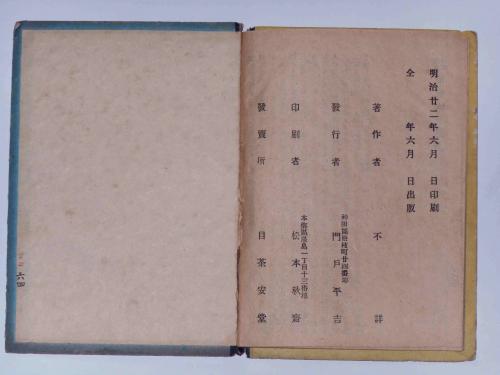 明治廿二年六月　日印刷
全　年六月　日出版
著作者　不詳
神田區猿楽町廿四番地
發行者　門戸平吉
本郷區湯島一丁目十三番地
印刷者　松本秋齋
發賣所　目茶安堂
六四